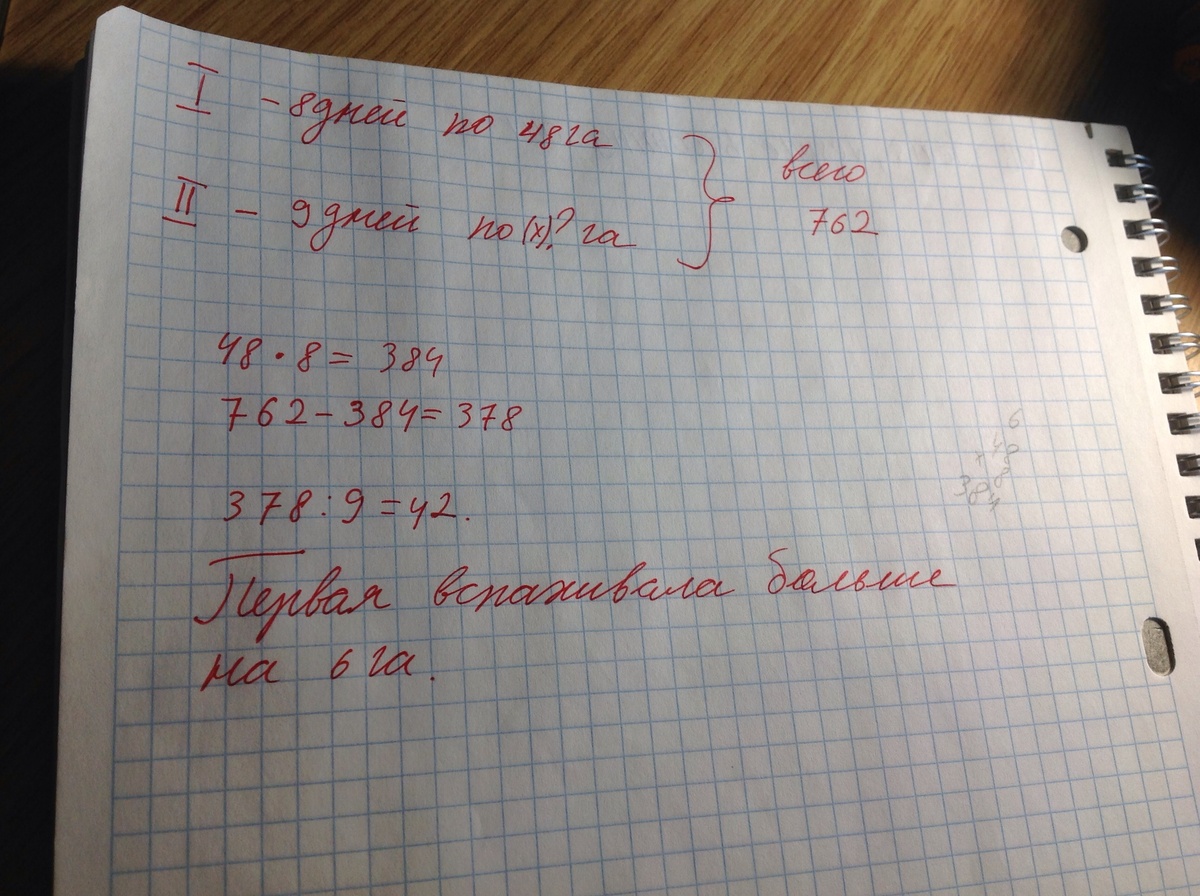 I - 8дней по 48га
II - 9дней по(х)? га
всего
762
48 · 8 = 384
762 - 384 = 378
378 : 9 = 42.
Первая вспахивала больше
на 6 га.
6
48
× 8
384